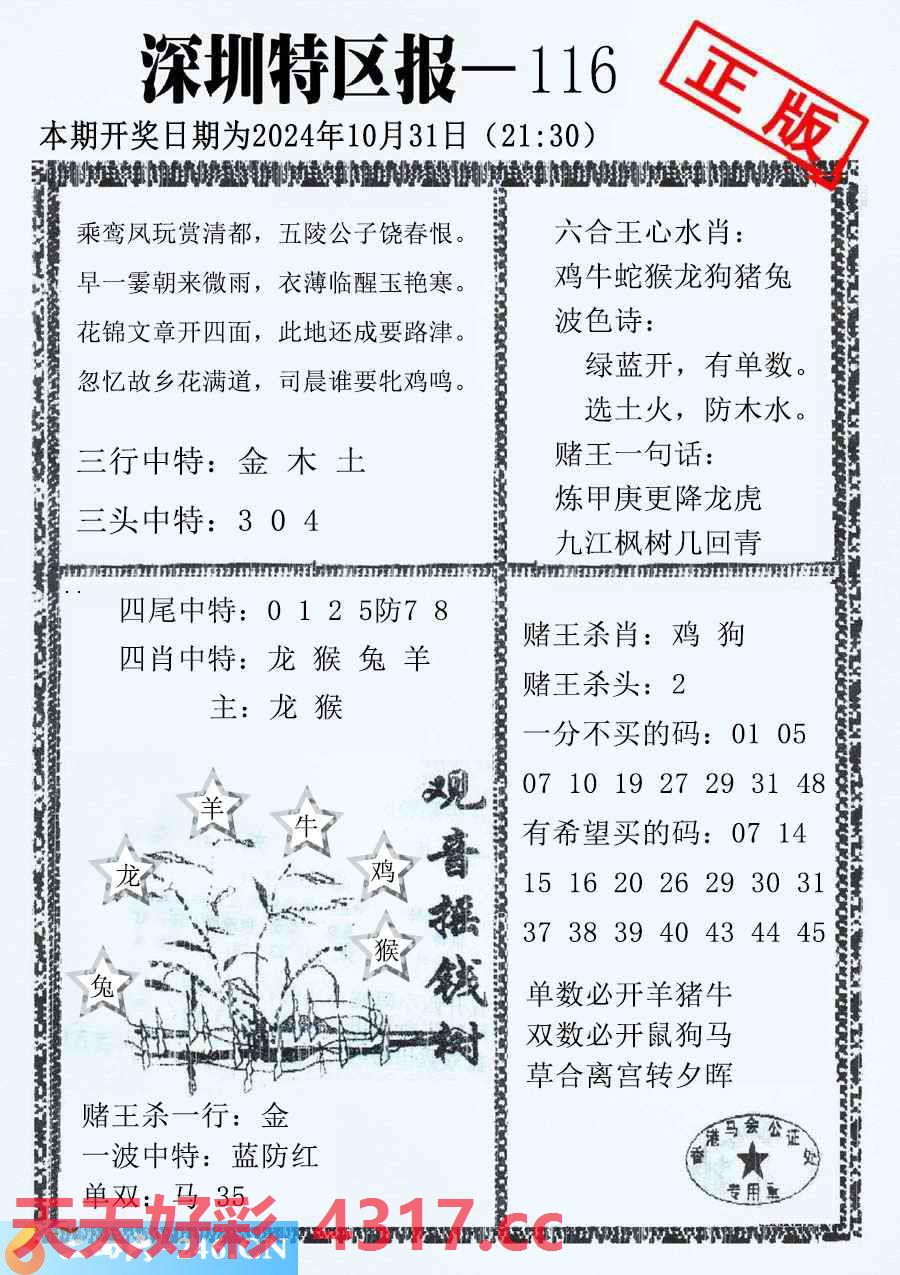 深圳特区报—116
正版
本期开奖日期为2024年10月31日（21:30）
乘鸾凤玩赏清都，五陵公子饶春恨。
早一霎朝来微雨，衣薄临醒玉艳寒。
花锦文章开四面，此地还成要路津。
忽忆故乡花满道，司晨谁要牝鸡鸣。
三行中特：金 木 土
三头中特：3 0 4
六合王心水肖：
鸡牛蛇猴龙狗猪兔
波色诗：
绿蓝开，有单数。
选土火，防木水。
赌王一句话：
炼甲庚更降龙虎
九江枫树几回青
四尾中特：0 1 2 5防7 8
四肖中特：龙 猴 兔 羊
主：龙 猴
羊
牛
龙
鸡
猴
兔
观音摇钱树
赌王杀一行：金
一波中特：蓝防红
单双：马 35
赌王杀肖：鸡 狗
赌王杀头：2
一分不买的码：01 05
07 10 19 27 29 31 48
有希望买的码：07 14
15 16 20 26 29 30 31
37 38 39 40 43 44 45
单数必开羊猪牛
双数必开鼠狗马
草合离宫转夕晖
香港马会公证处
专用章
天天好彩 4317.cc